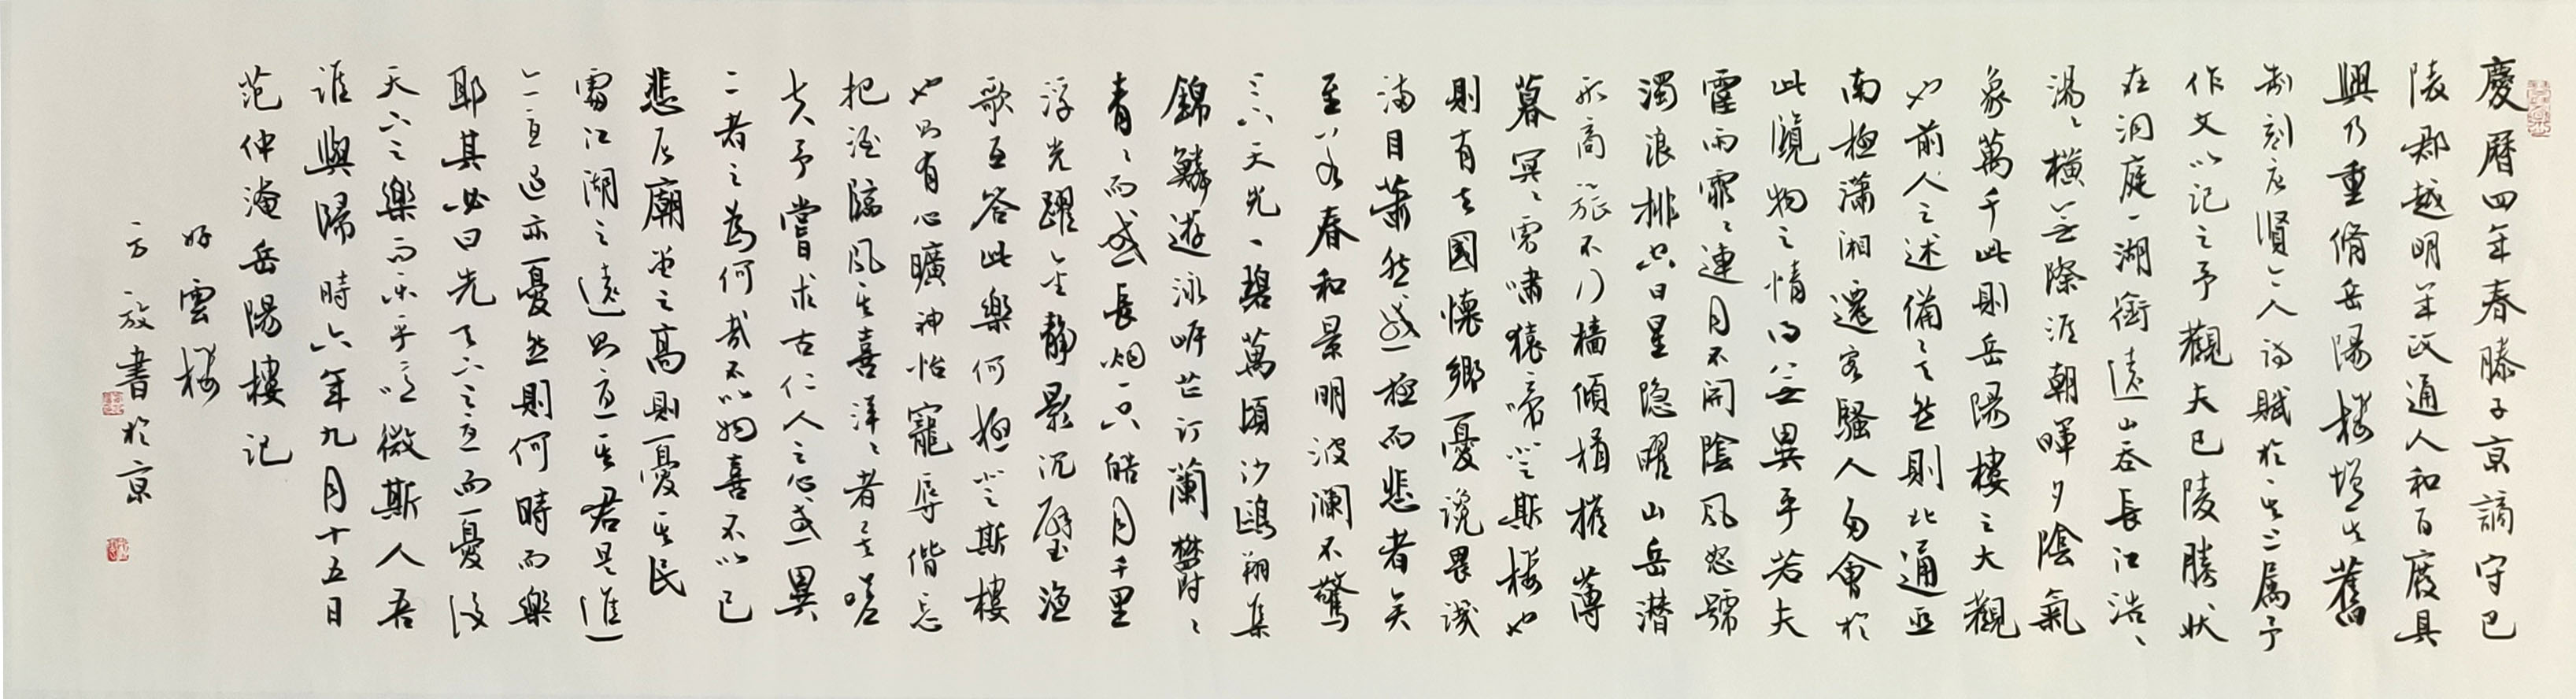 慶曆四年春滕子京謫守巴
陵郡越明年政通人和百廢具
興乃重脩岳陽樓增其舊
制刻唐賢今人詩賦於其上属予
作文以記之予觀夫巴陵勝狀
在洞庭一湖銜遠山吞長江浩〻
湯〻橫無際涯朝暉夕陰氣
象萬千此則岳陽樓之大觀
也前人之述備矣然則北通巫
南極瀟湘遷客騷人多會於
此覽物之情得無異乎若夫
霪雨霏〻連月不開陰风怒號
濁浪排空日星隐曜山岳潜
形商旅不行檣傾楫摧薄
暮冥〻虎嘯猿啼登斯樓也
則有去國懷鄉憂讒畏譏
滿目蕭然感極而悲者矣
至若春和景明波瀾不驚
上下天光一碧萬頃沙鷗翔集
錦鱗遊泳岸芷汀蘭鬱〻
青〻而或長烟一空皓月千里
浮光躍金靜影沉璧漁
歌互答此樂何極登斯樓
也則有心曠神怡寵辱偕忘
把酒臨风其喜洋〻者矣嗟
夫予嘗求古仁人之心或異
二者之為何哉不以物喜不以己
悲居廟堂之高則憂其民
處江湖之遠則憂其君是進
亦憂退亦憂然則何時而樂
耶其必曰先天下之憂而憂後
天下之樂而樂乎噫微斯人吾
誰與歸時六年九月十五日
范仲淹岳陽樓記
好雲樓
方放書於京